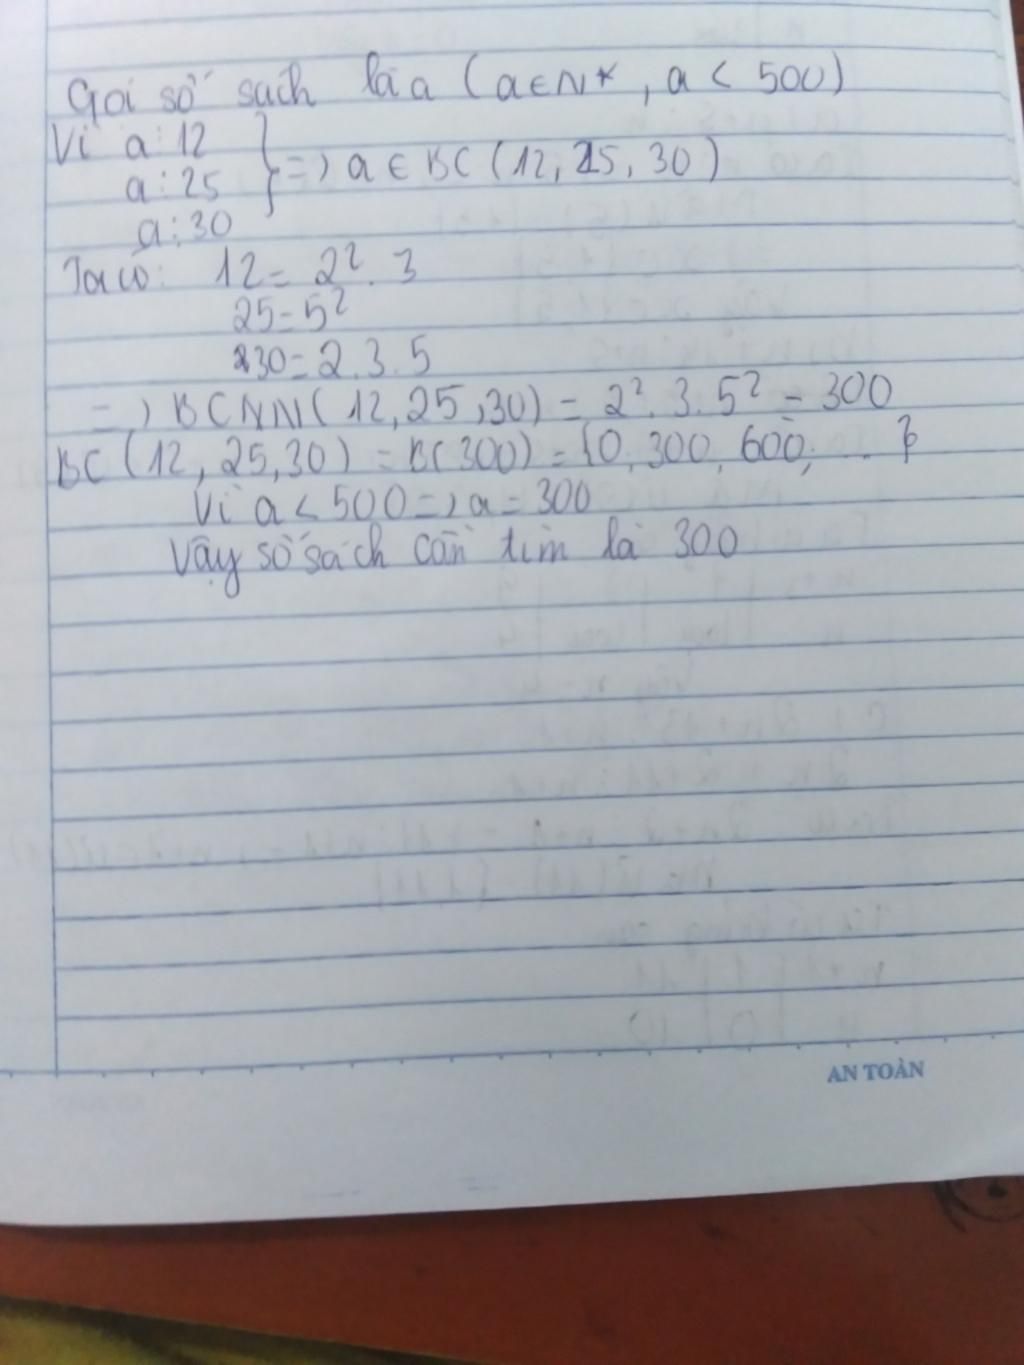 Gọi số sách là a (a ∈ N*, a < 500)
Vì a ⋮ 12
a ⋮ 25 } => a ∈ BC (12, 25, 30)
a ⋮ 30
Ta có: 12 = 2². 3
25 = 5²
30 = 2.3.5
=> BCNN(12,25,30) = 2². 3. 5² = 300
BC (12, 25,30) = B(300) = {0, 300, 600, ... }
Vì a < 500 => a = 300
Vậy số sách cần tìm là 300
AN TOÀN